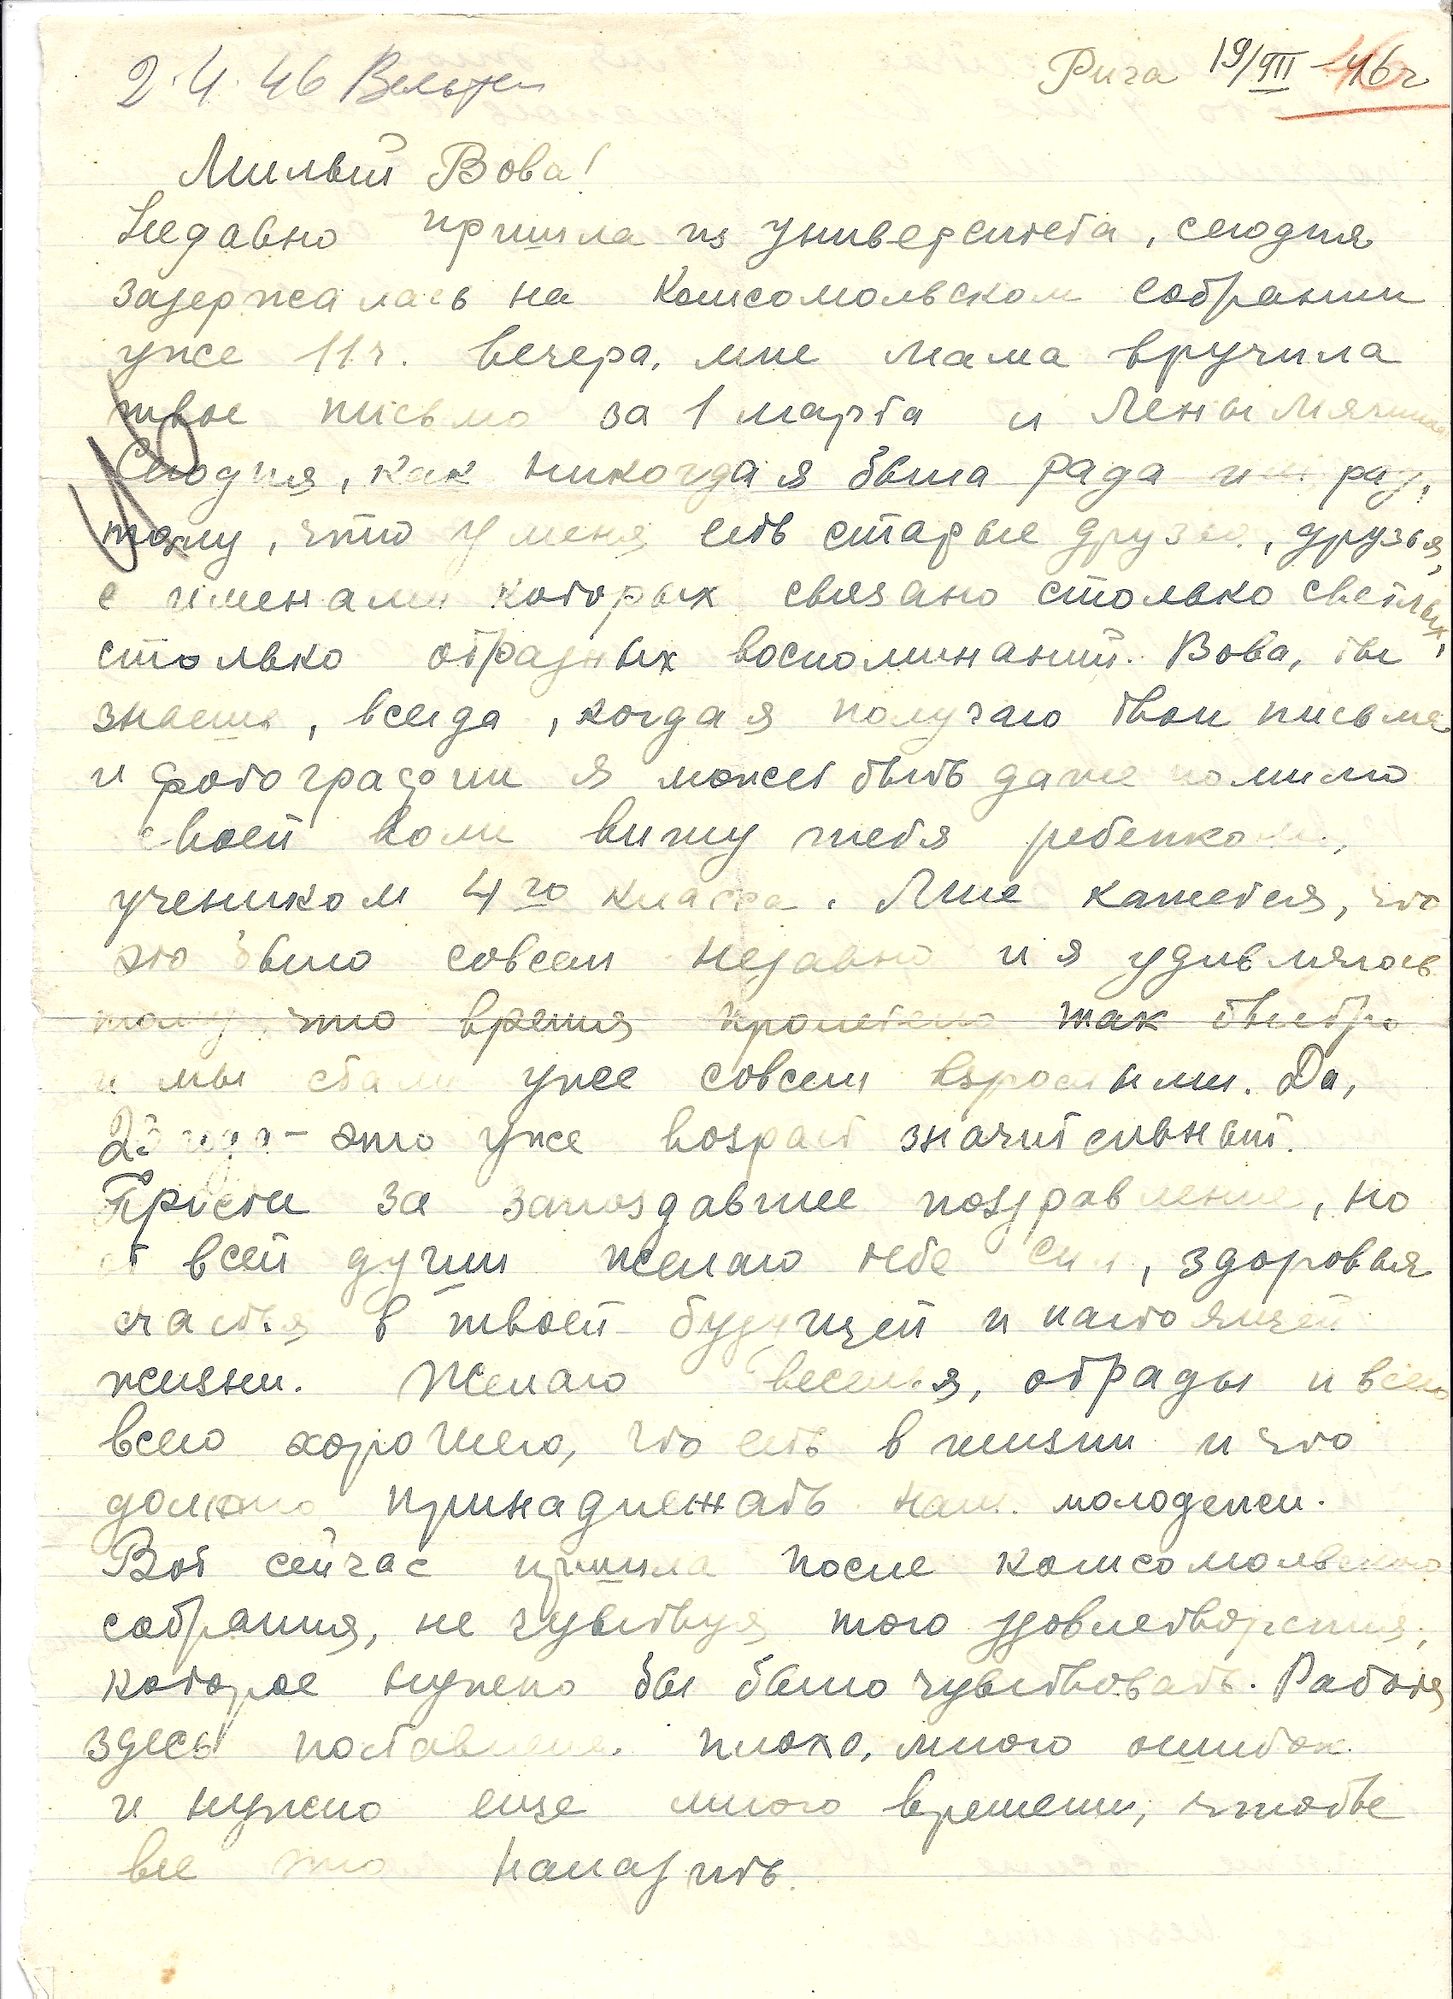 2.4.46 Вельтен
Рига 19/III-46 г
Милый Вова!
Недавно пришла из университета, сегодня
задержалась на комсомольском собрании
уже 11 ч. вечера, мне мама вручила
твое письмо за 1 марта и Лены
Сегодня, как никогда я была рада и
тому, что у меня есть старые друзья, друзья,
с именами которых связано столько светлых,
столько отрадных воспоминаний. Вова, ты
знаешь, всегда, когда я получаю твои письма
и фотографии я может быть даже помимо
своей воли вижу тебя ребенком,
учеником 4го класса. Мне кажется, что
это было совсем недавно и я удивляюсь
тому что время пролетело так быстро
и мы стали уже совсем взрослыми. Да,
23 года - это уже возраст значительный.
Прости за запоздавшее поздравление, но
от всей души желаю тебе сил, здоровья
счастья в твоей будущей и настоящей
жизни. Желаю веселья, отрады и всего
всего хорошего, что есть в жизни и что
должно принадлежать нам. молодежи.
Вот сейчас пришла после комсомольского
собрания, не чувствуя того удовлетворения,
которое нужно бы было чувствовать. Работа
здесь поставлена плохо, много ошибок
и нужно еще много времени, чтобы
все это наладить.